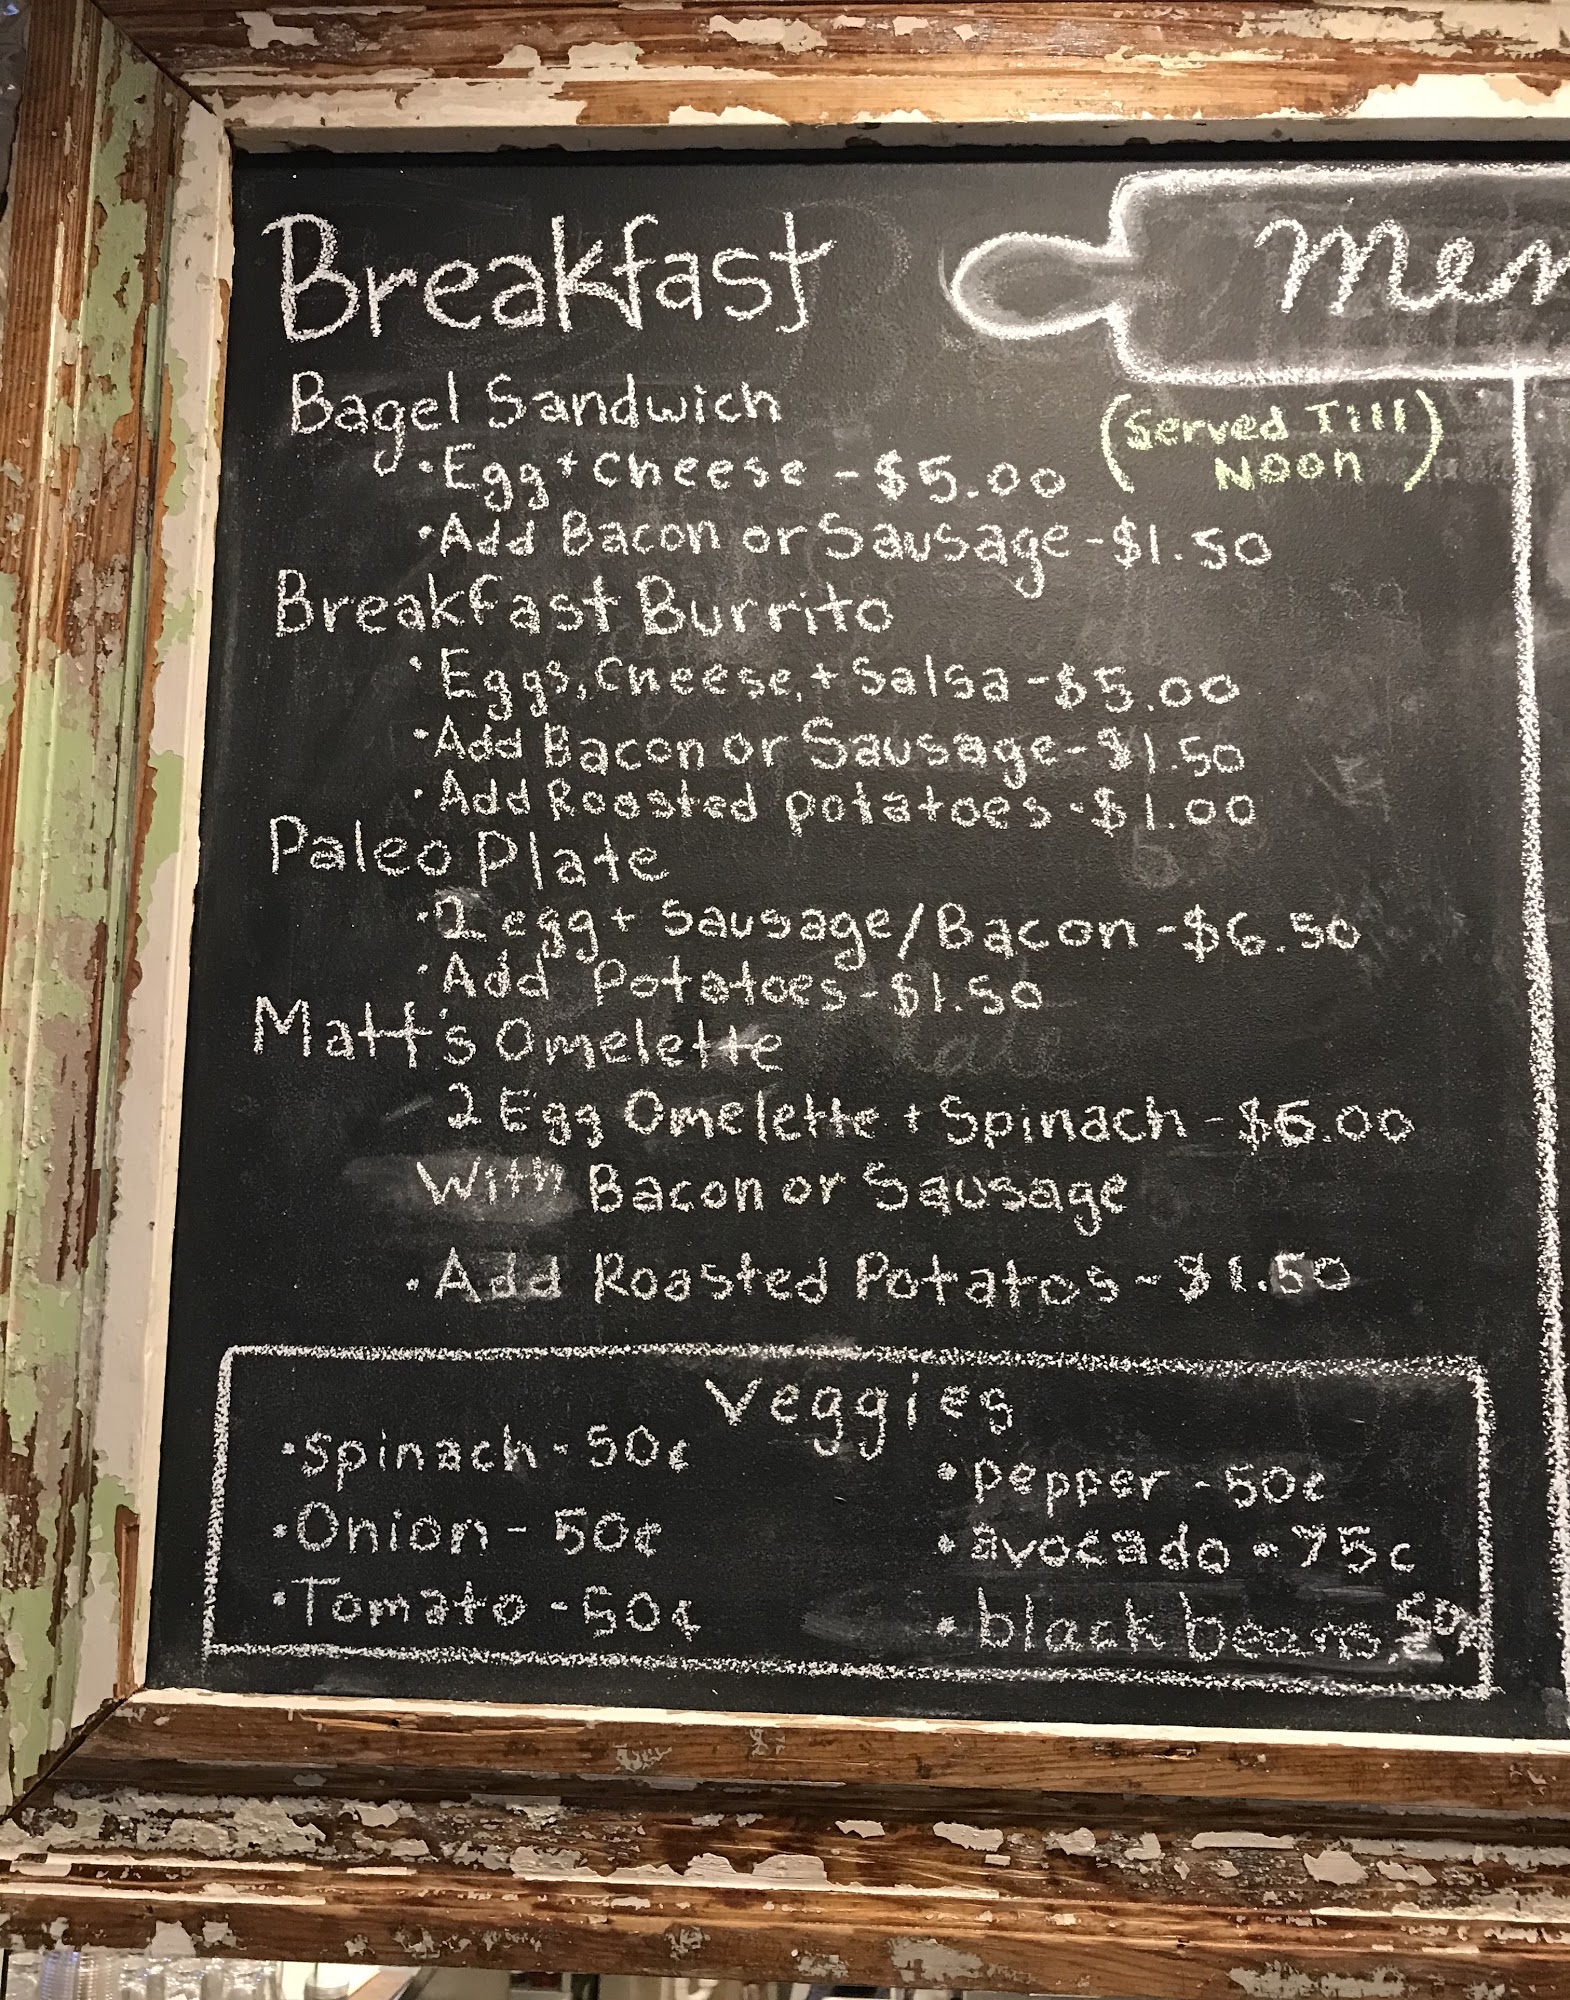 Breakfast
Men
Bagel Sandwich
(Served Till
Noon)
•Egg + Cheese - $5.00
•Add Bacon or Sausage - $1.50
Breakfast Burrito
•Eggs, Cheese, + Salsa - $5.00
•Add Bacon or Sausage - $1.50
•Add Roasted potatoes - $1.00
Paleo Plate
•2 egg + Sausage/Bacon - $6.50
•Add Potatoes - $1.50
Matt's Omelette
2 Egg Omelette + Spinach - $6.00
With Bacon or Sausage
•Add Roasted Potatos - $1.50
Veggies
•Spinach - 50¢
•Onion - 50¢
•Tomato - 50¢
•pepper - 50¢
•avocado - 75c
•black beans, 50¢